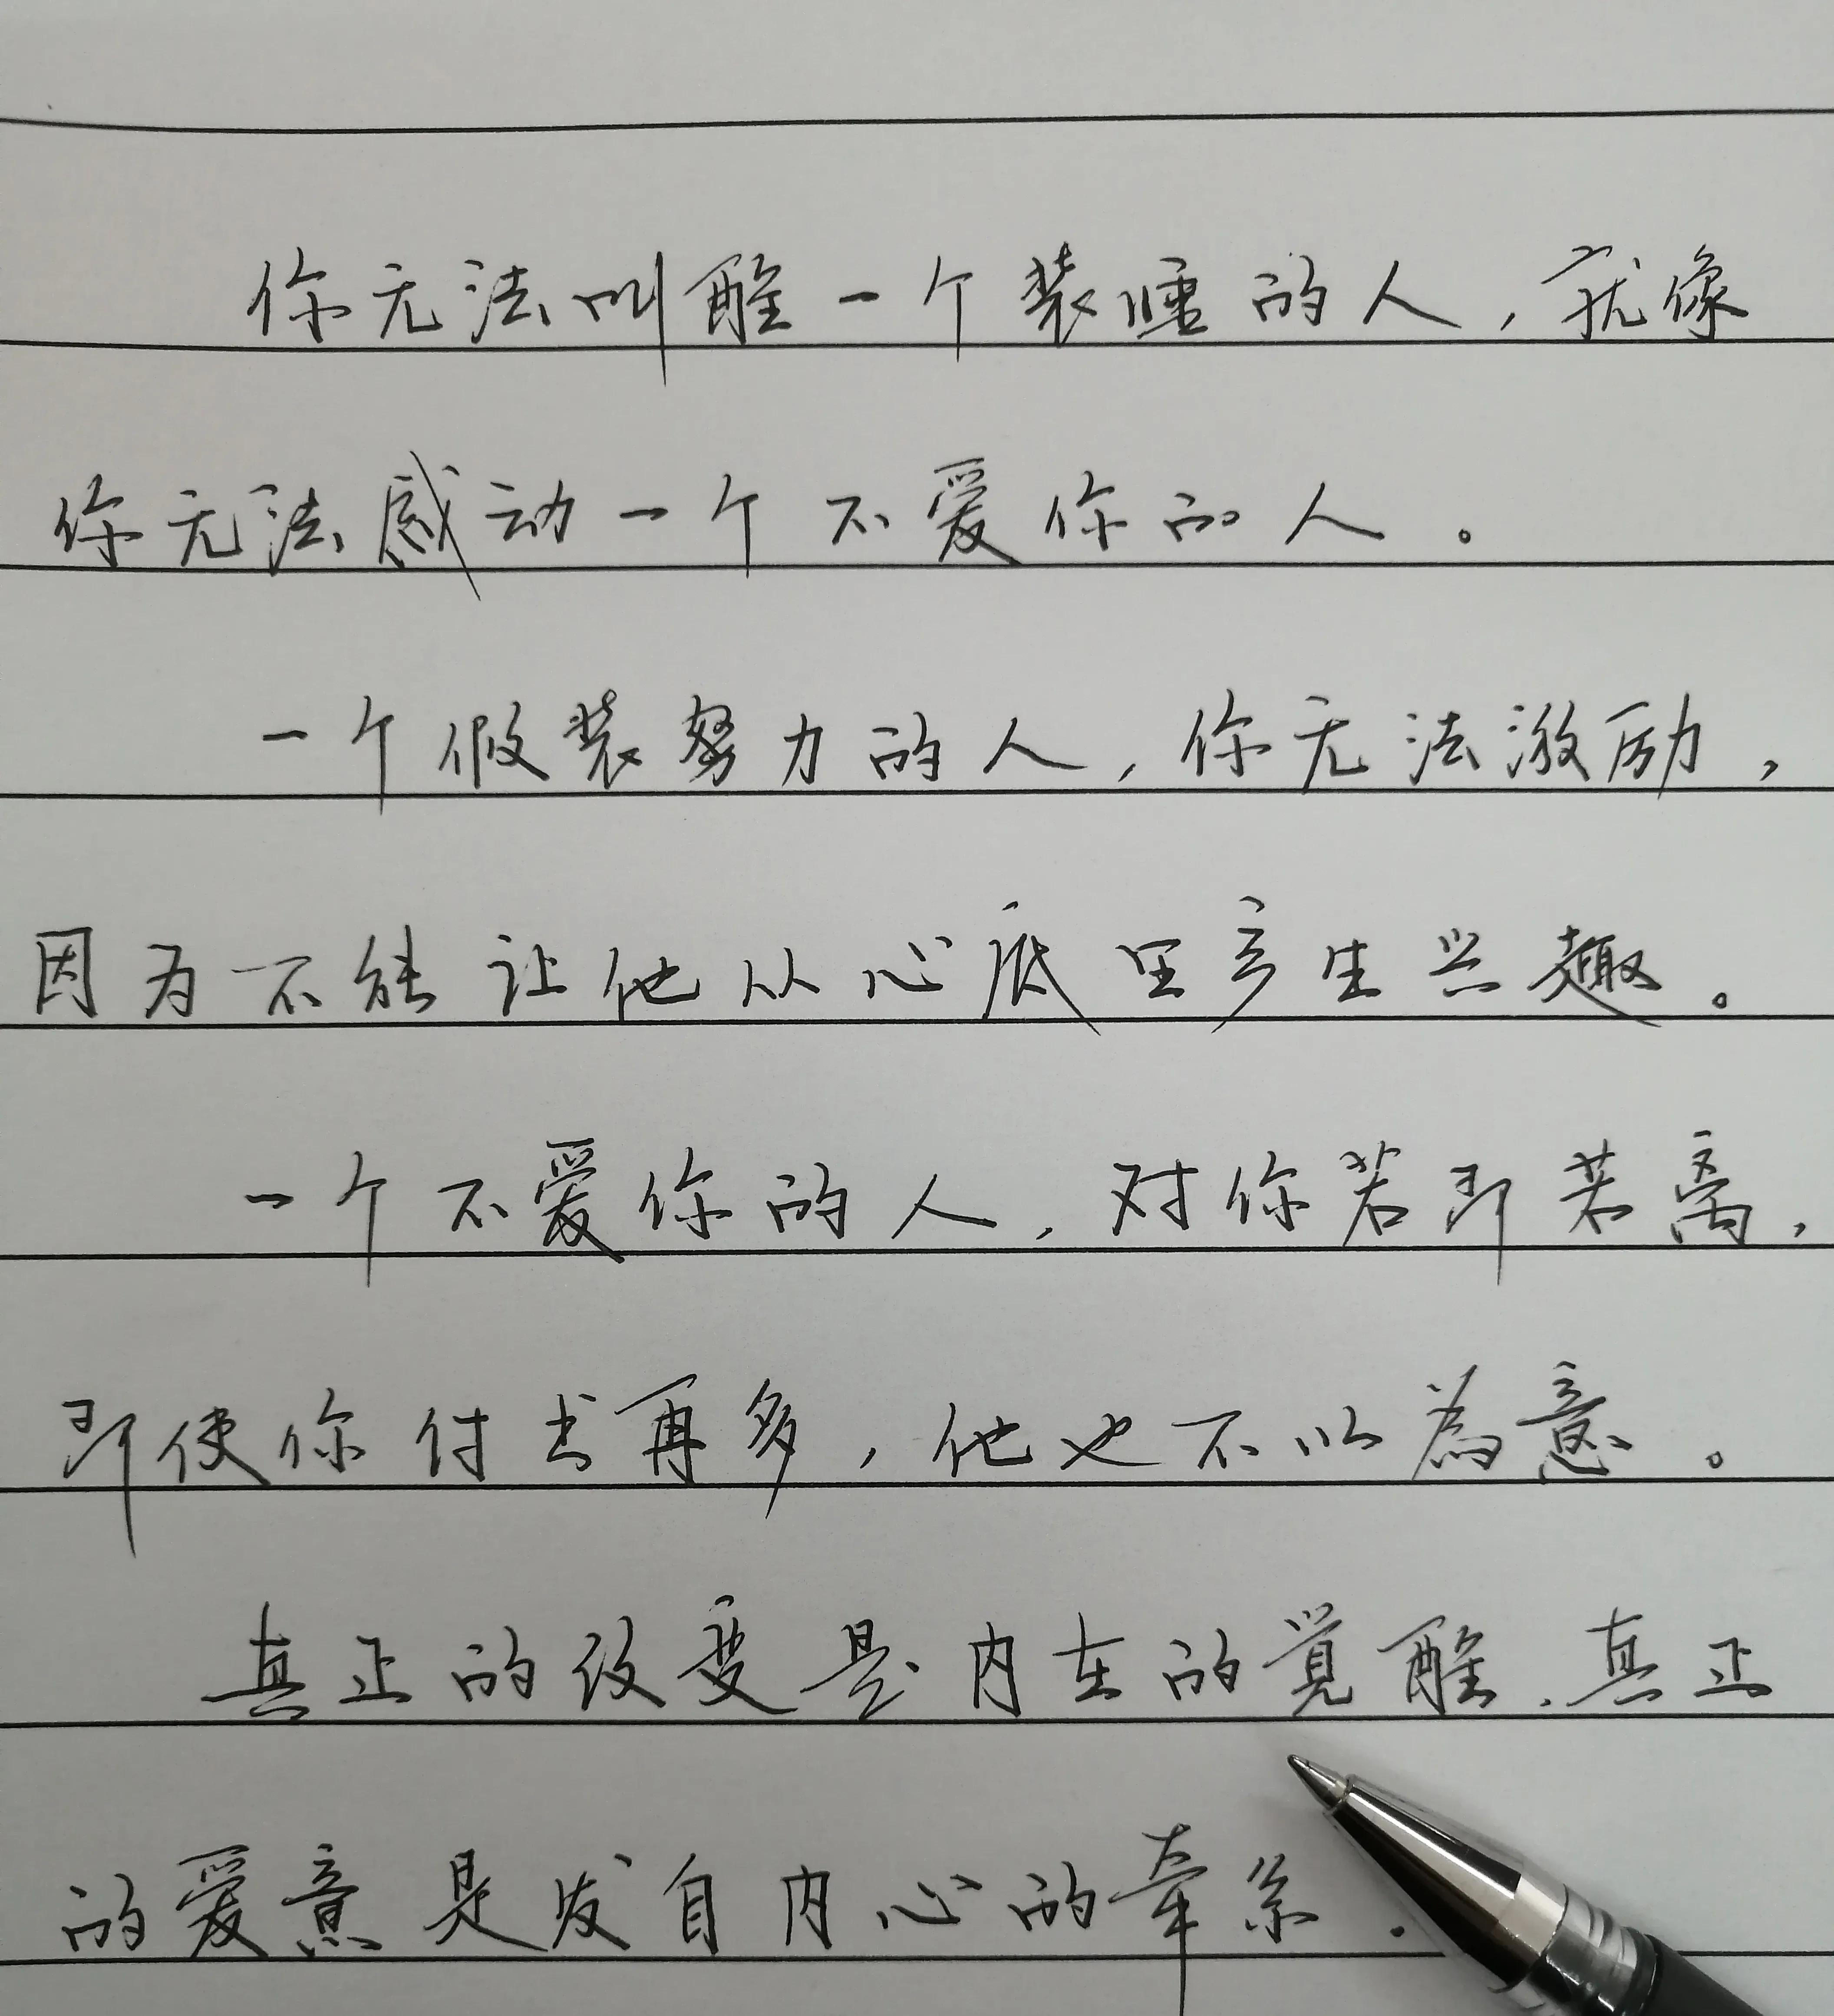 你无法叫醒一个装睡的人，就像
你无法感动一个不爱你的人。
一个假装努力的人，你无法激励，
因为不能让他从心底里产生兴趣。
一个不爱你的人，对你若即若离，
即使你付出再多，他也不以為意。
真正的改变是内在的觉醒，真正
的爱意是发自内心的牵系.